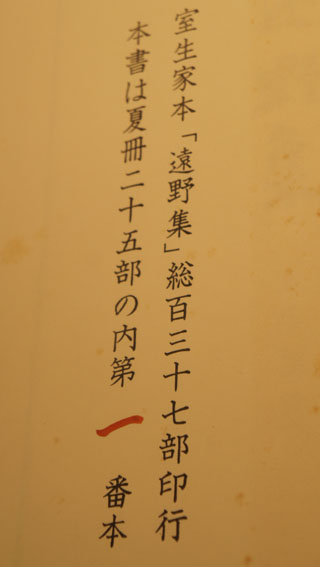 室生家本「遠野集」総百三十七部印行
本書は夏冊二十五部の内第一番本